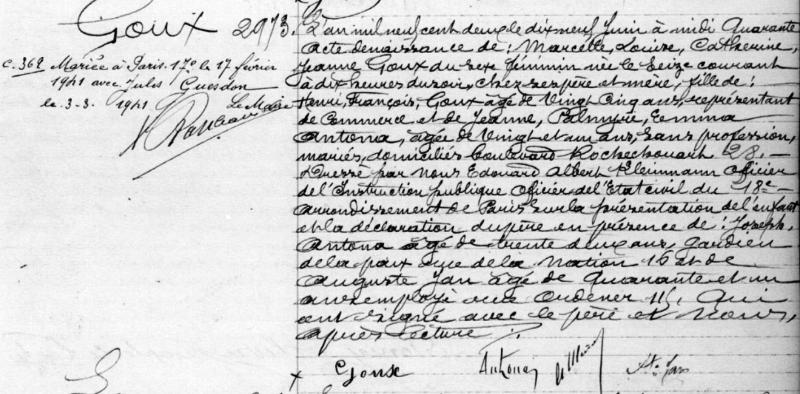 Goux 2973.
c. 362 Mariée à Paris 17e le 17 février
1941 avec Jules Guesdon
le 3-3 1941 Le Maire
L'an mil neuf cent deux le dix neuf Juin à midi Quarante
acte de naissance de: Marcelle, Louise, Catherine,
Jeanne Goux du sexe féminin née le Seize courant
à dix heures du soir, chez ses père et mère, fille de:
Henri, François, Goux âgé de Vingt Cinq ans, représentant
de Commerce et de Jeanne, Palmyre, Emma
Antona, âgée de Vingt et un ans, sans profession,
mariés, domiciliés boulevard Rochechouart 28. —
Dressé par nous Edouard Albert Kleinmann Officier
de l'Instruction publique Officier de l'Etat civil du 18e —
arrondissement de Paris sur la présentation de l'enfant
et la déclaration du père en présence de: Joseph,
Antona âgé de trente deux ans, Gardien
de la paix rue de la Nation 16 et de
Auguste Jan âgé de Quarante et un
ans employé rue Ordener 115, Qui
ont signé avec le père et Nous,
après lecture ./.
x Goux Antona Ate Jan